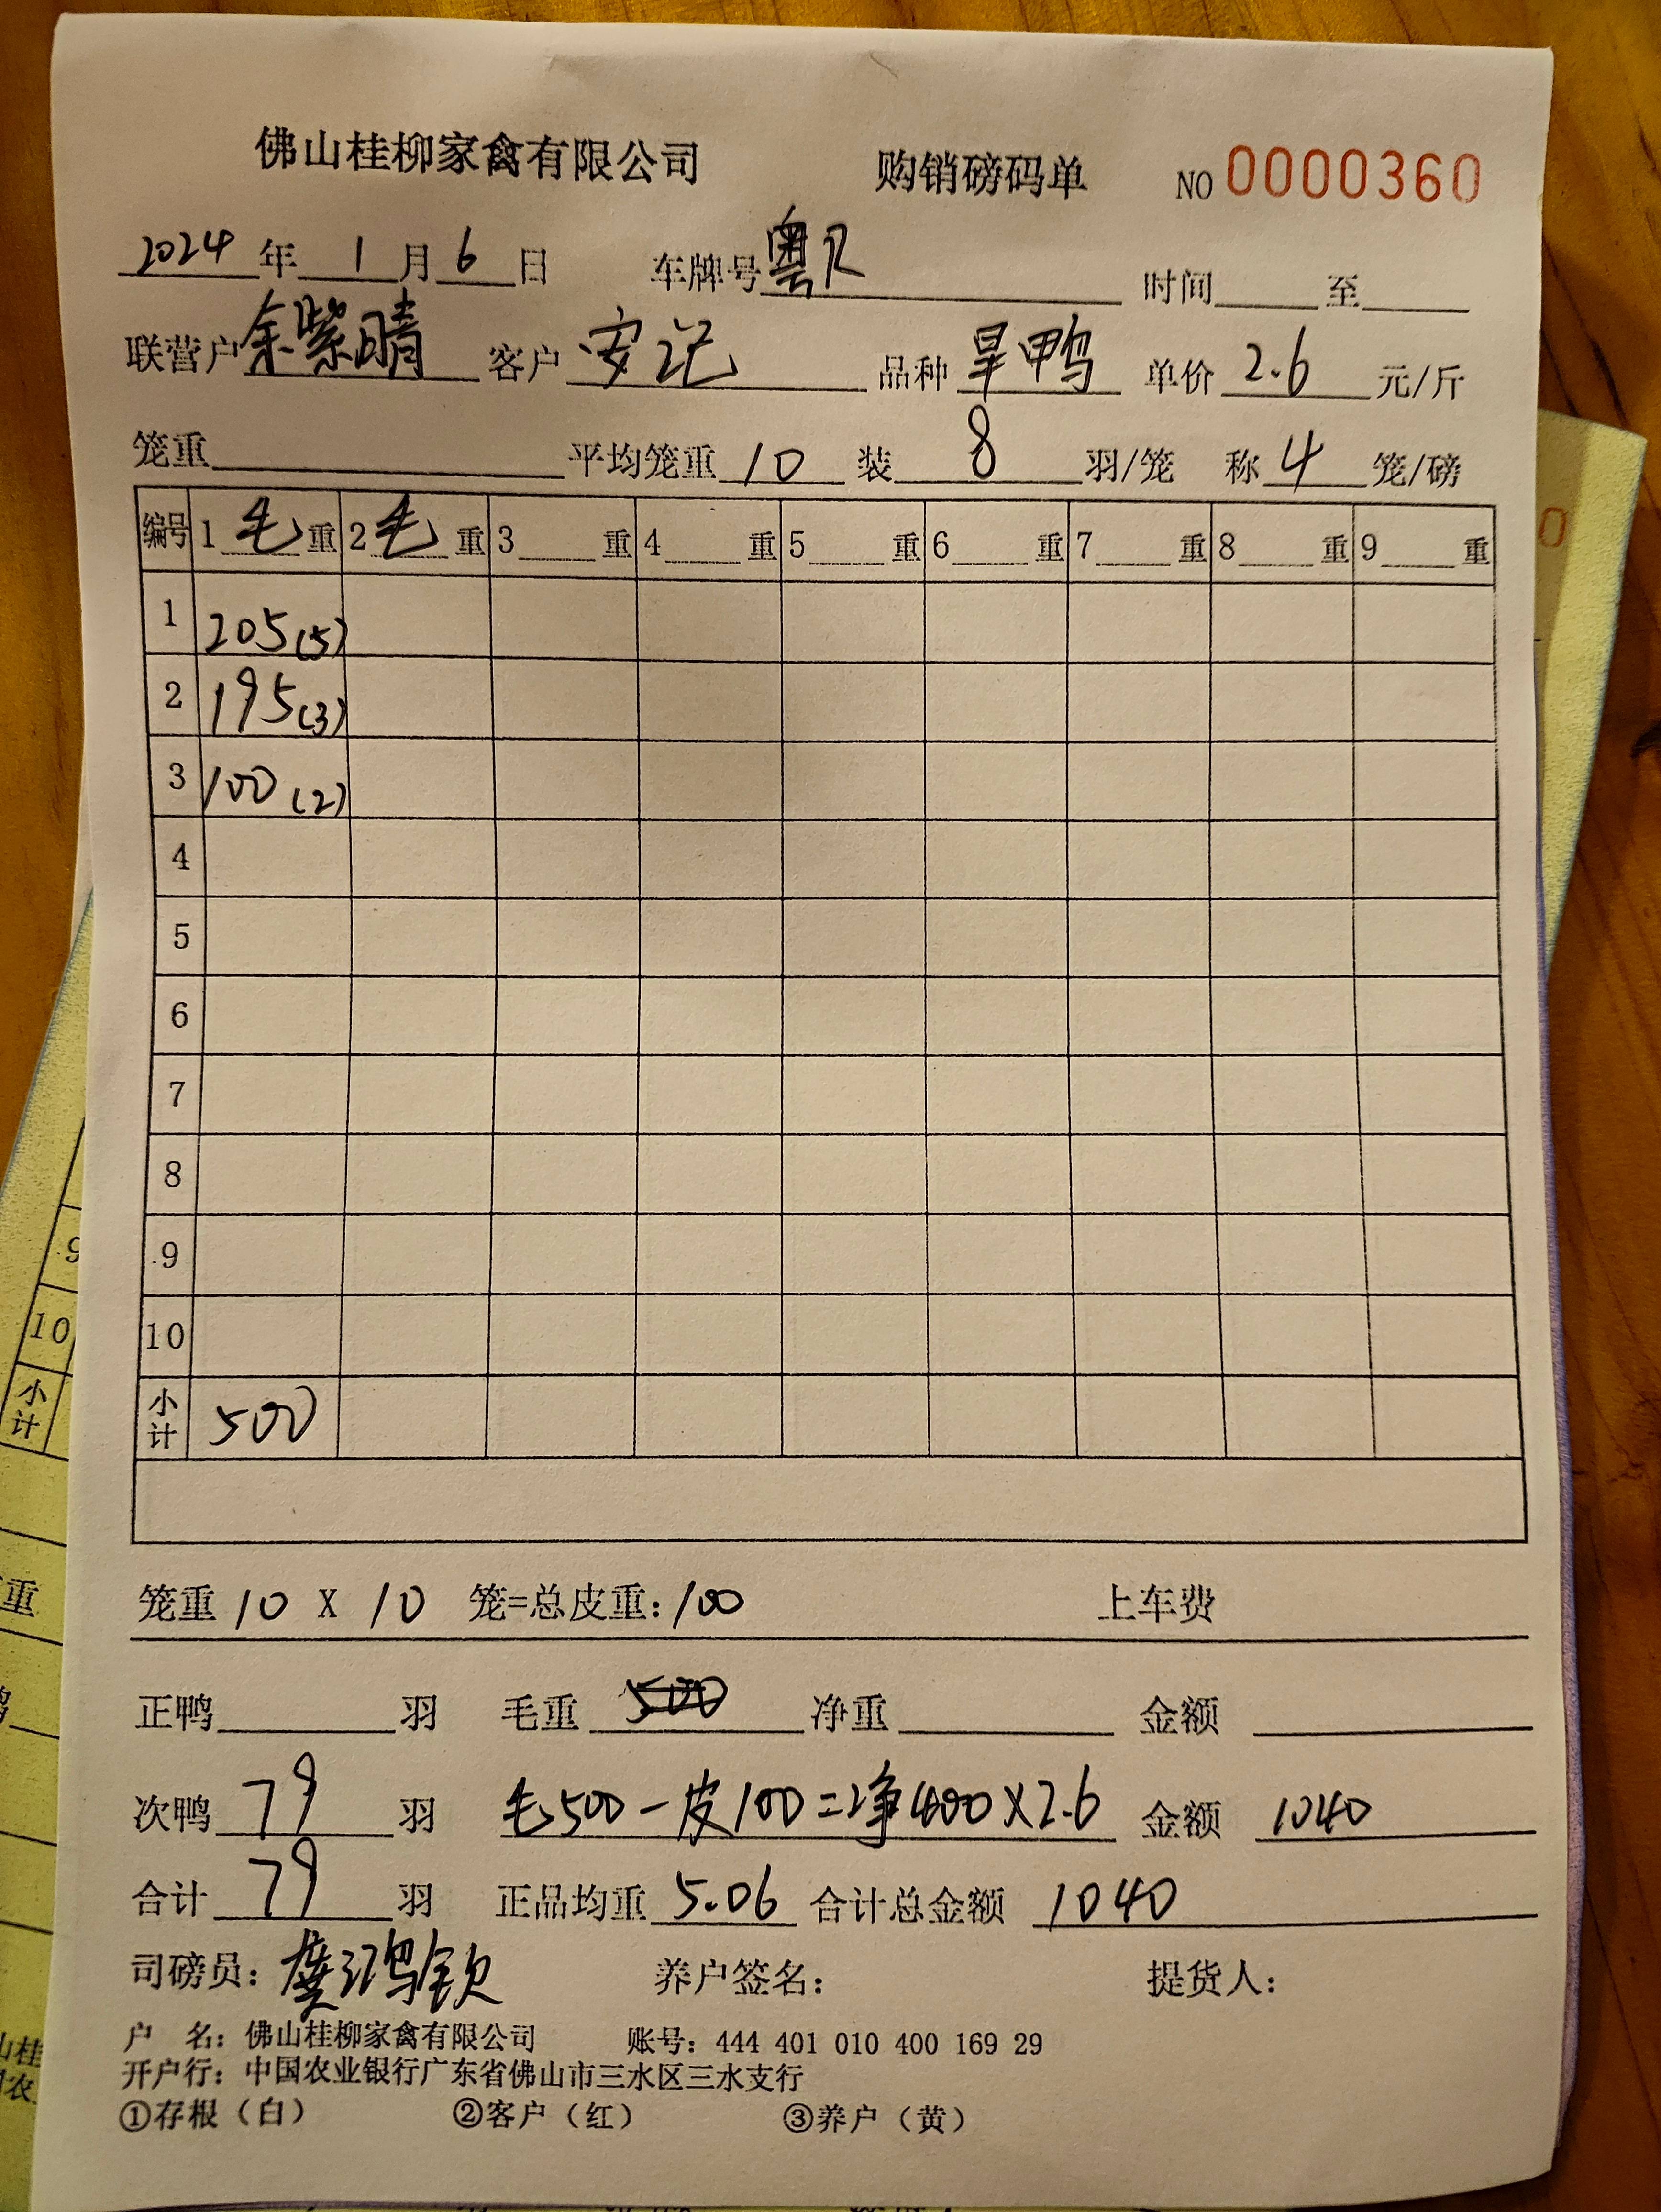 佛山桂柳家禽有限公司 购销磅码单 NO 0000360
2024年1月6日 车牌号粤R 时间 至
联营户余紫晴 客户安记 品种旱鸭 单价2.6元/斤
笼重 平均笼重10 装8羽/笼 称4笼/磅
编号 1毛重 2毛重 3重 4重 5重 6重 7重 8重 9重
1 205(5)
2 195(3)
3 100(2)
4
5
6
7
8
9
10
小计 500
笼重10X10笼=总皮重:100 上车费
正鸭 羽 毛重 净重 金额
次鸭79羽 毛500-皮100=净400×2.6 金额1040
合计79羽 正品均重5.06 合计总金额1040
司磅员: 鸿钦 养户签名: 提货人:
户 名: 佛山桂柳家禽有限公司 账号: 444 401 010 400 169 29
开户行: 中国农业银行广东省佛山市三水区三水支行
①存根(白) ②客户(红) ③养户(黄)
9
10
小计
重